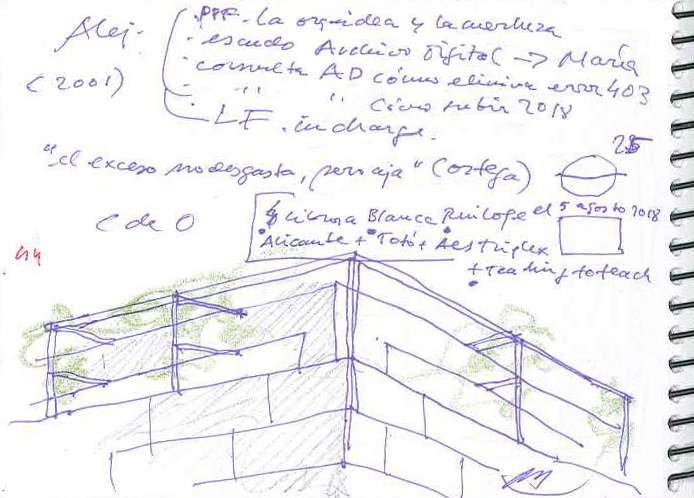 Alej.
(2001)
PPF. La orquidea y la
escudo Archivo Digital → María
consulta AD cómo elimina error 403
" " Cómo subir 2018
LF. in charge.
"el exceso no desgasta, " (Ortega)
25
C de O
Blanca el 5 agosto 2018
Alicante + Totó +
+ Teaching to teach